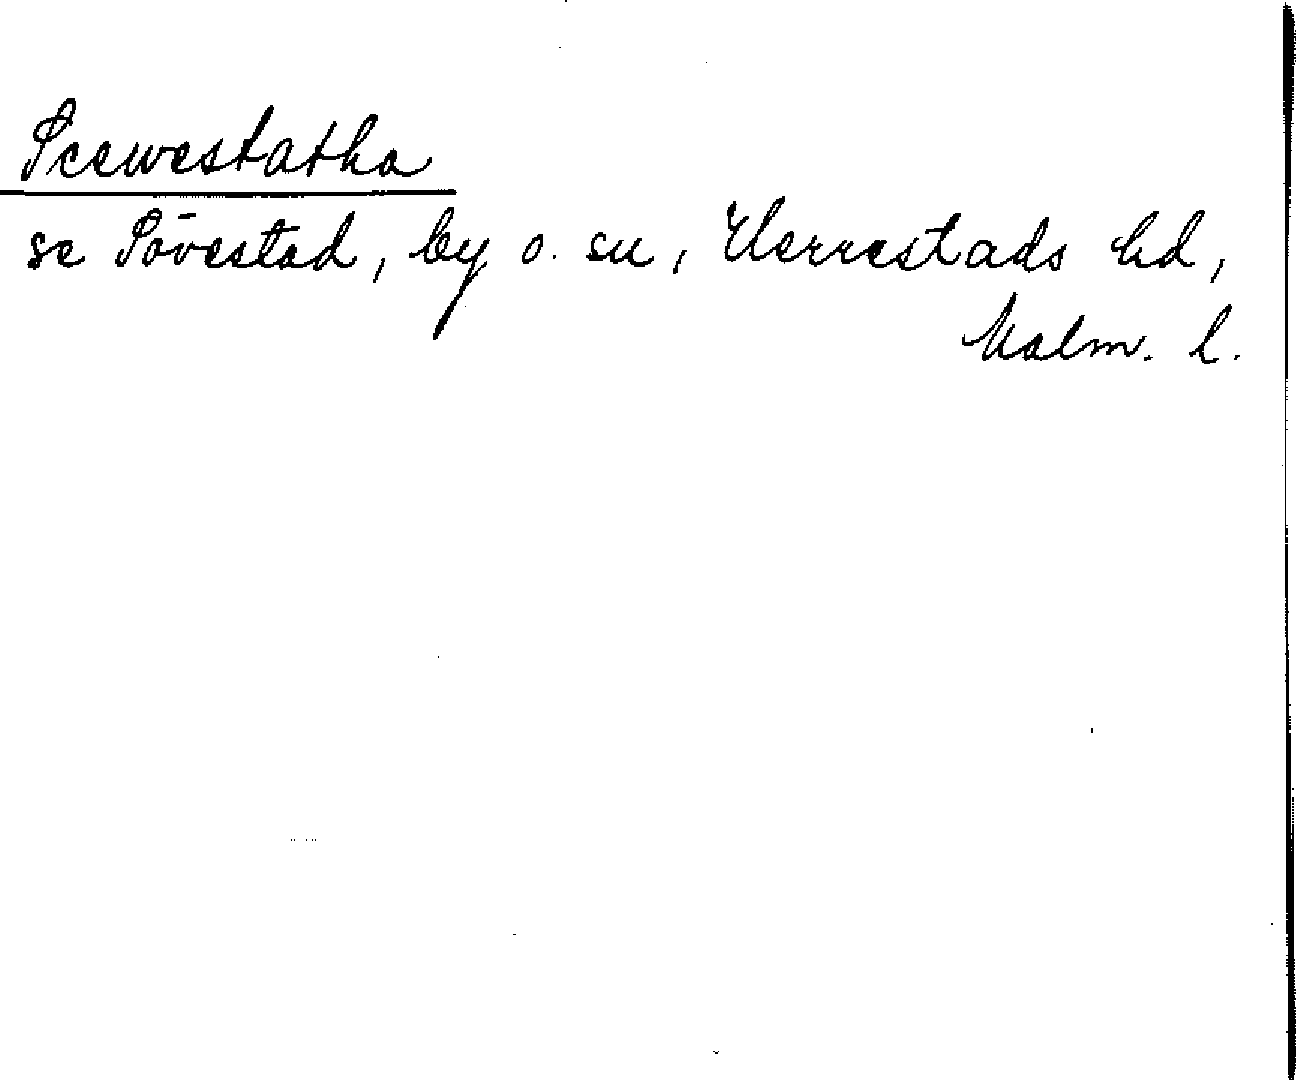 Seewestatha
se Sövestad, by o. sn, Herrestads hd,
Malm. l.